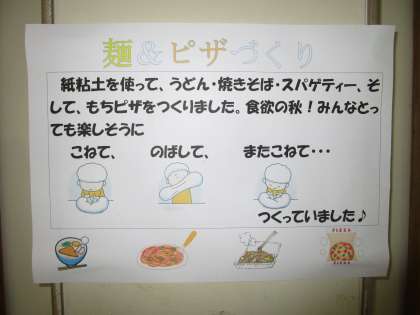 麺&ピザづくり
紙粘土を使って、うどん・焼きそば・スパゲティー、そ
して、もちピザをつくりました。食欲の秋！みんなとっ
ても楽しそうに
こねて、 のばして、 またこねて・・・
つくっていました♪
PIZZA
PIZZA